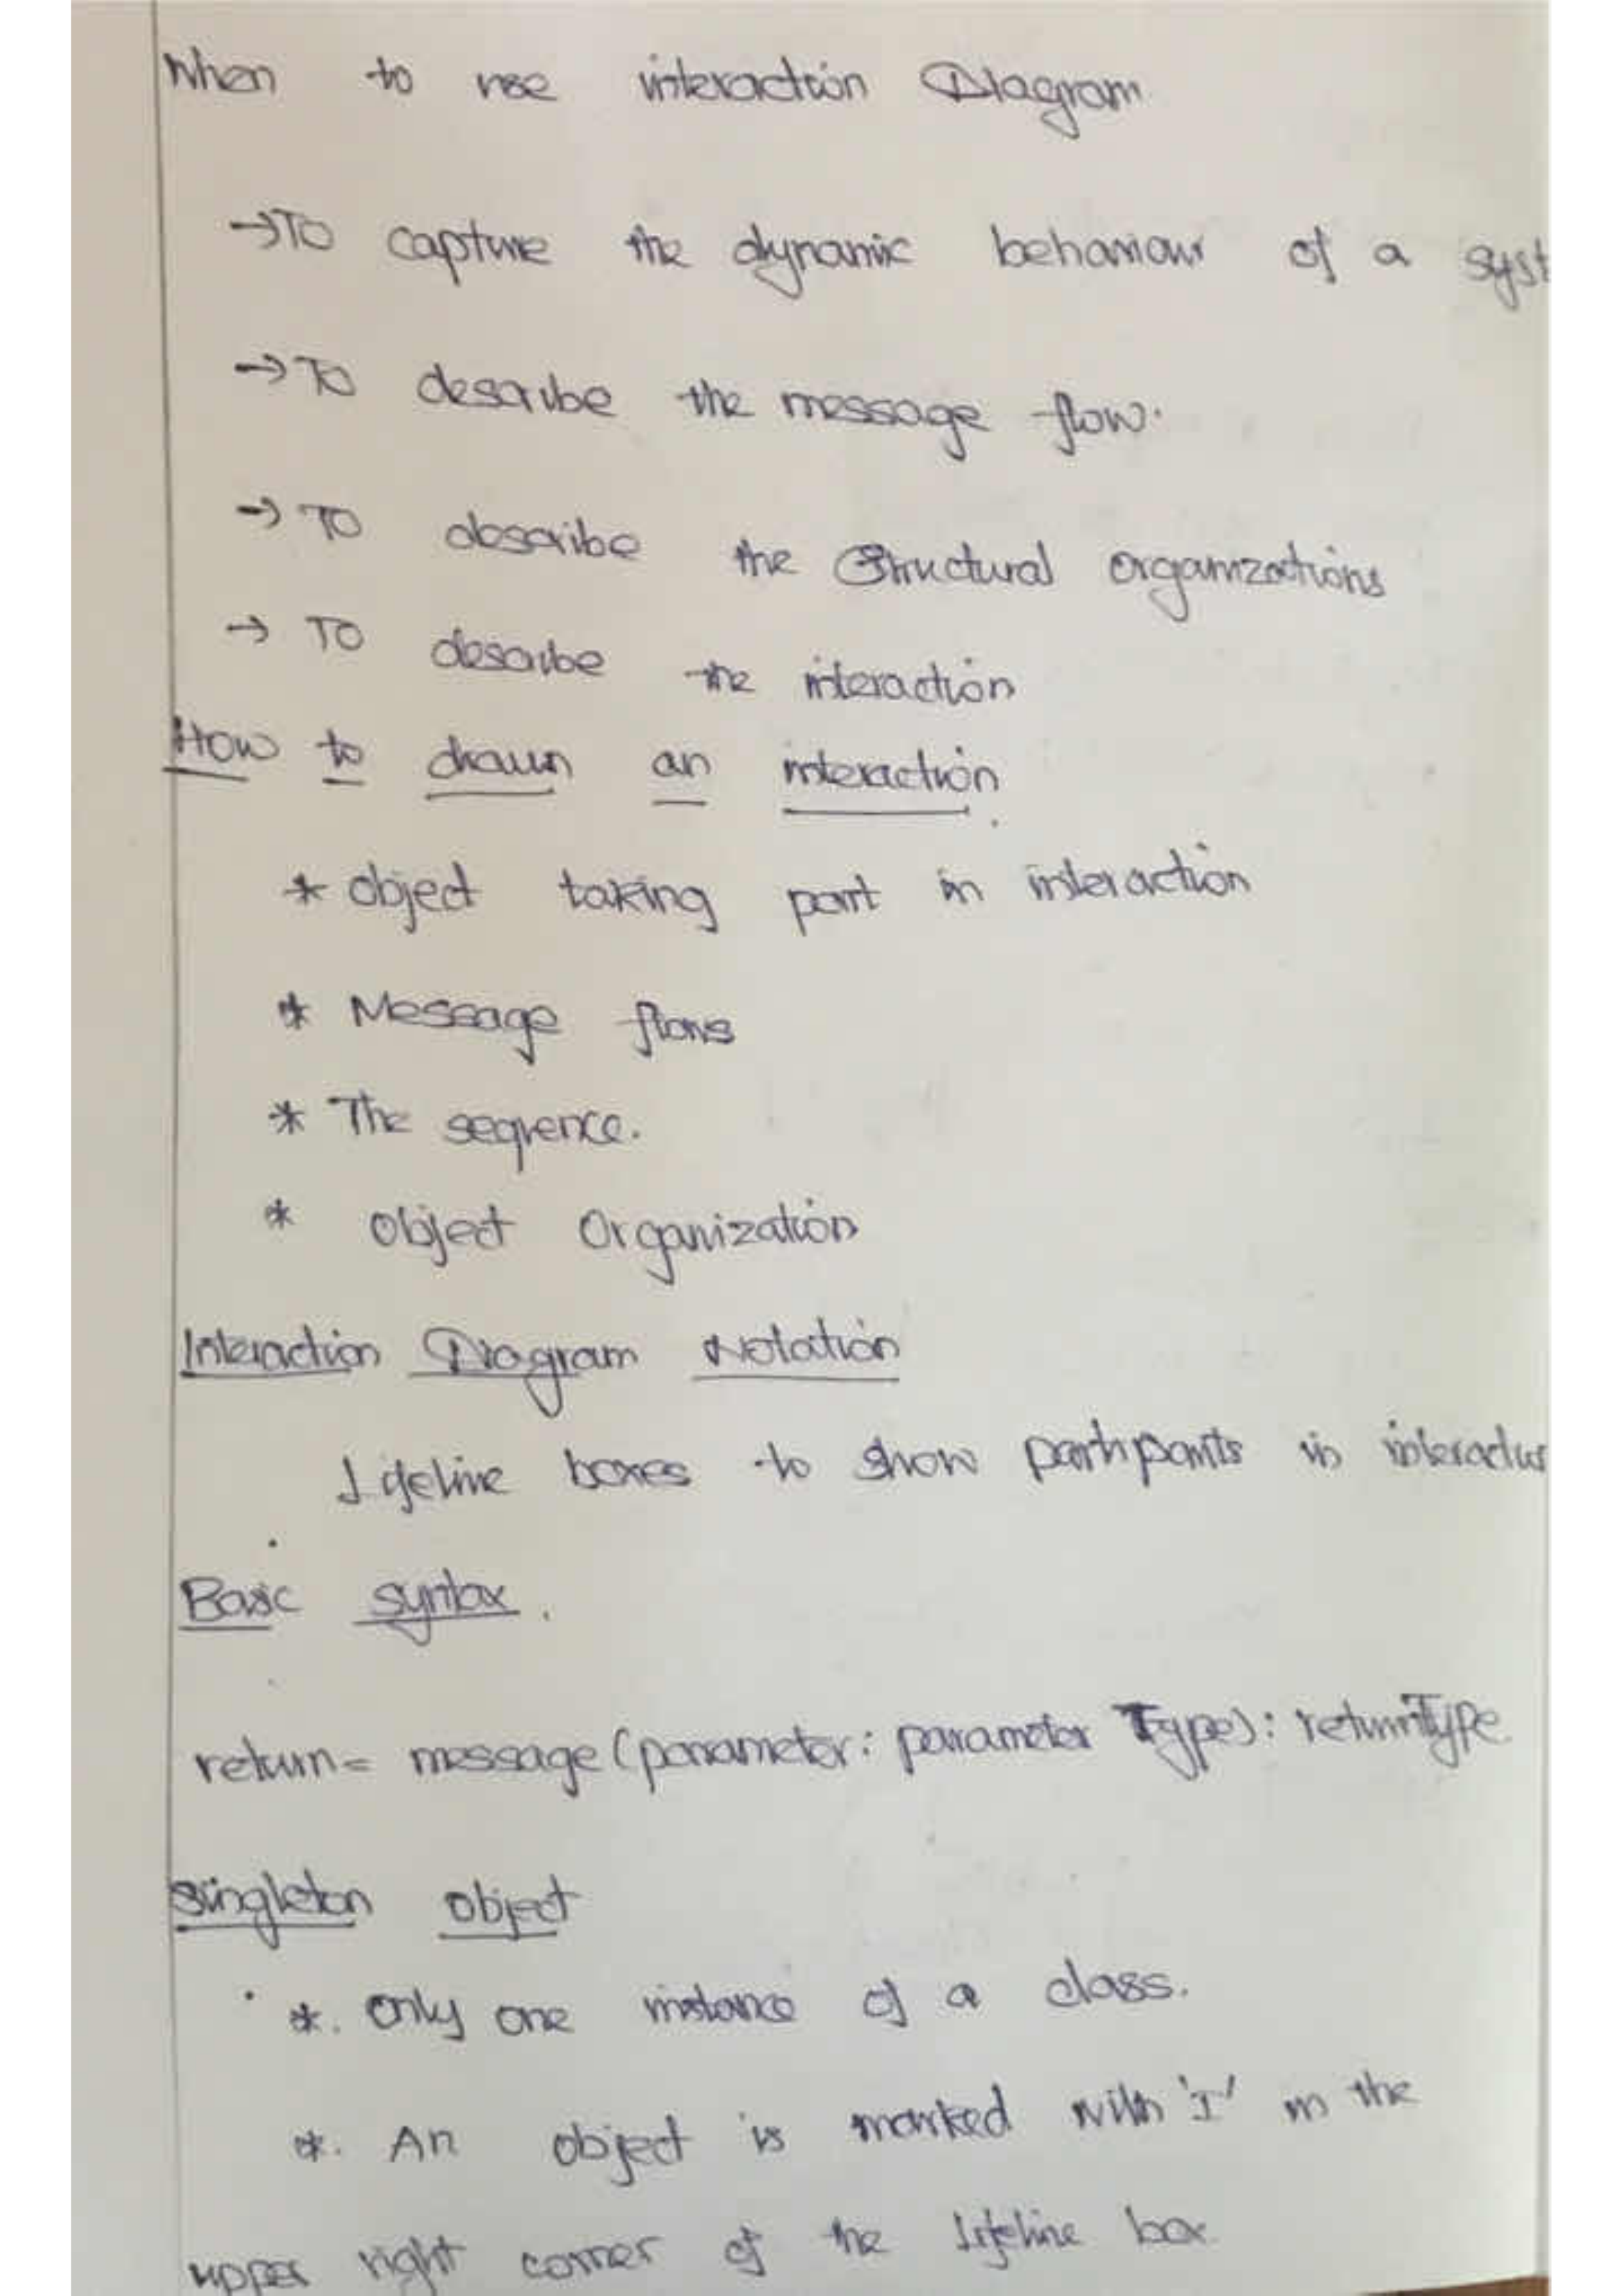 When to use interaction Diagram
→To capture the dynamic behaviour of a syst
→To describe the message flow.
→ To describe the Structural organizations
→ To describe the interaction
How to drawn an interaction.
* object taking part in interaction
* Message flows
* The sequence.
* Object Organization
Interaction Diagram Notation
Lifeline boxes to show partipants in interactio
Basic syntax.
return= message (parameter: parameter Type): returnType
Singleton object
*. Only one instance of a class.
*. An object is marked with '1' in the
upper right corner of the lifeline box.